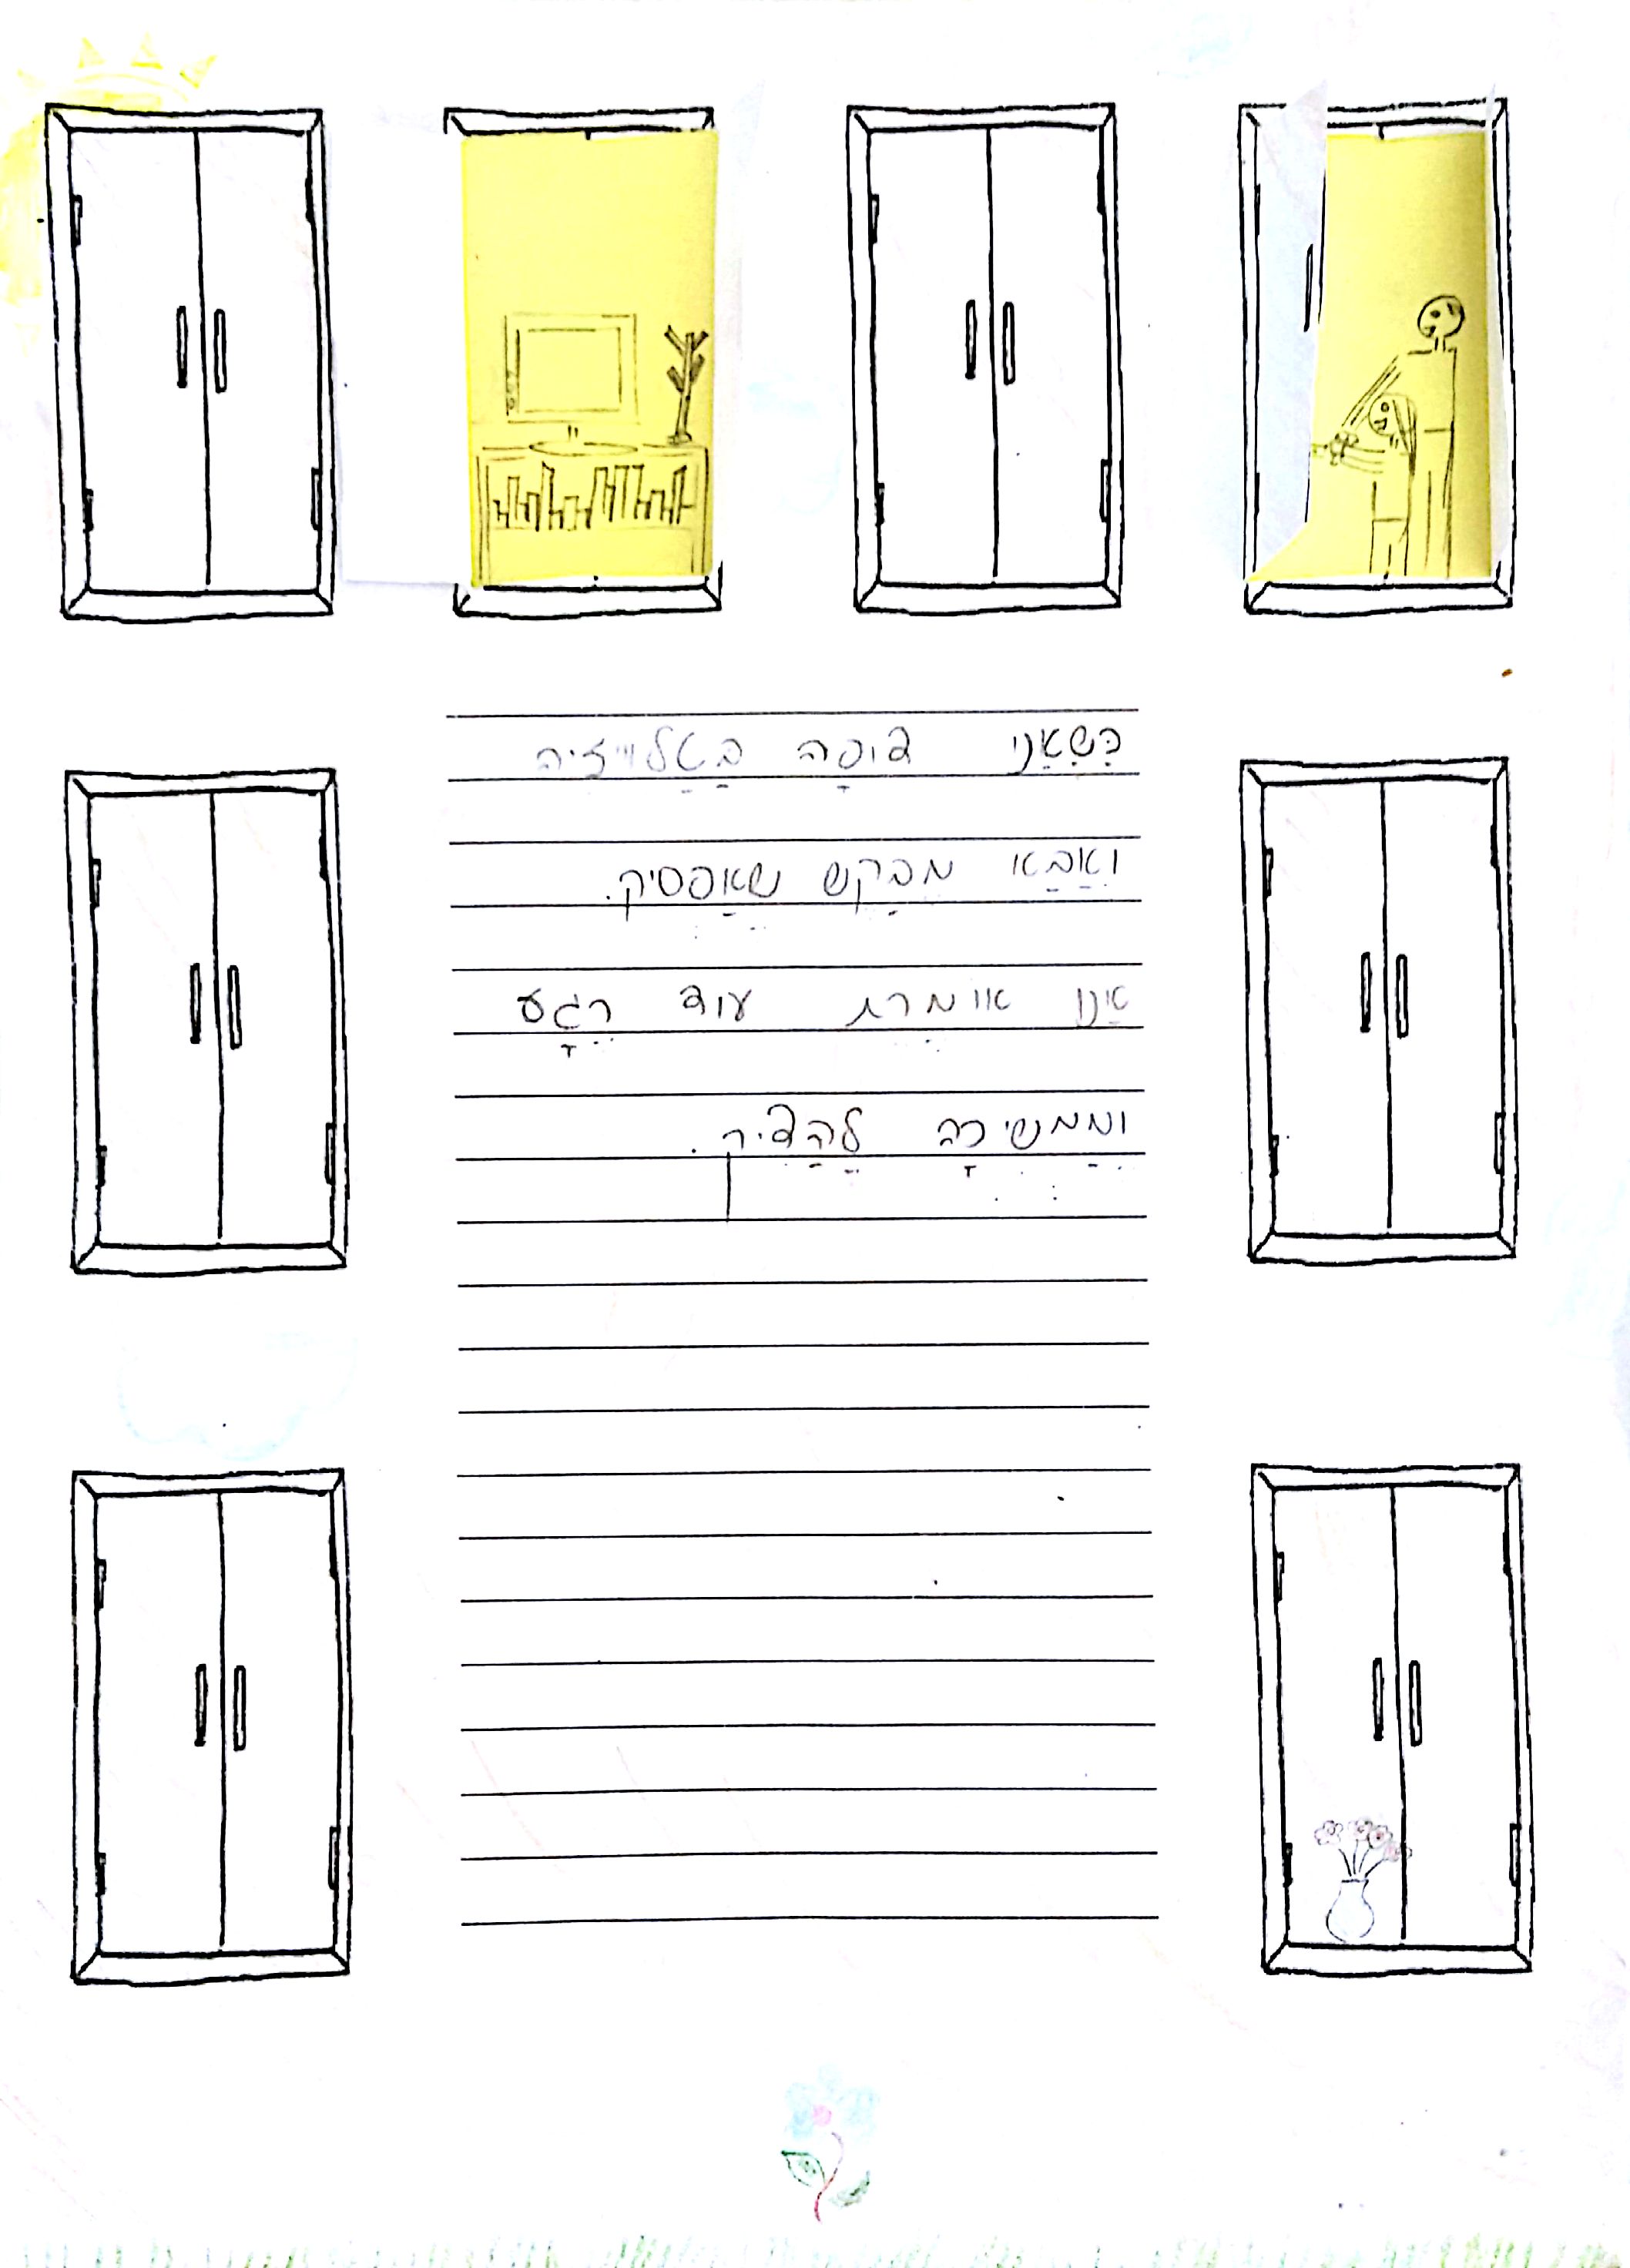 כַּשַׁאַני צופָה בַּטַלוויזיה
ואַבַּא מבַקש שאַפסיק.
אַני אומרת עוד רגָע
וממשיכָה